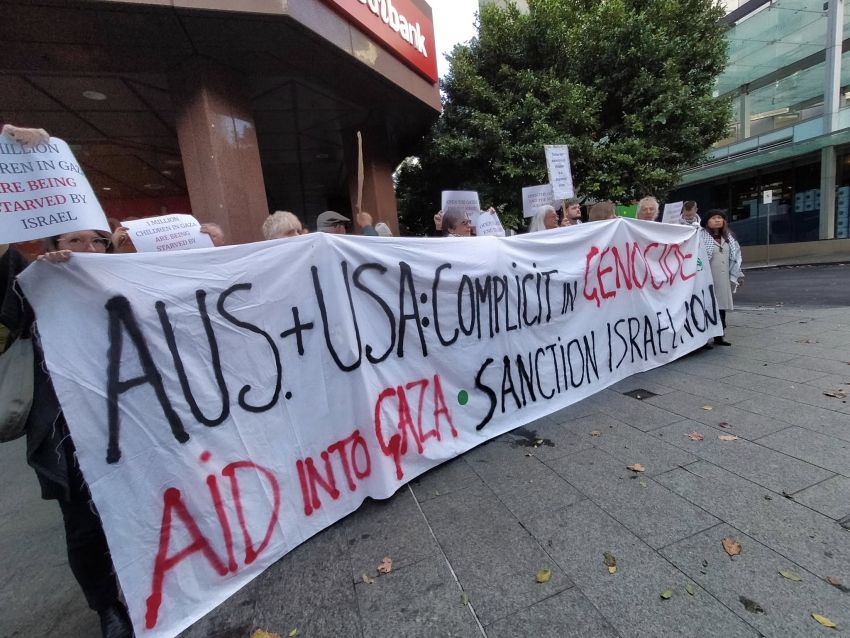 bank
1 MILLION
CHILDREN IN GAZA
ARE BEING
STARVED BY
ISRAEL
1 MILLION
CHILDREN IN GAZA
ARE BEING
STARVED BY
AUS. + USA: COMPLICIT IN GENOCIDE
AID INTO GAZA • SANCTION ISRAEL NOW